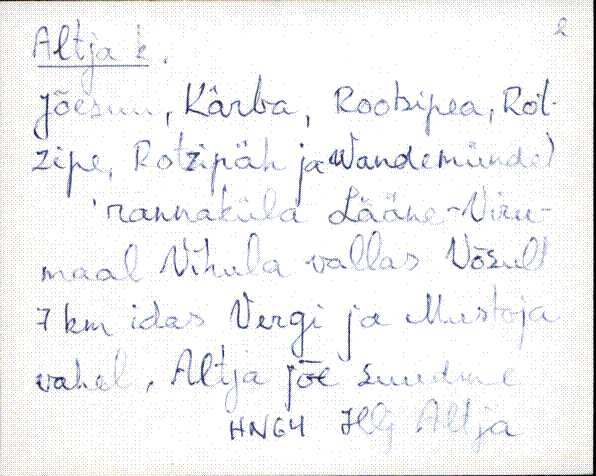 2
Altja k.
Jõesuu, Kârba, Rootsipea, Rot-
zipe, Rotzipäh ja Wandemünde)
'rannaküla' Lääne-Viru-
maal Vihula vallas Võsult
7 km idas Vergi ja Mustoja
vahel. Altja jõe suudme
HNG4 Altja